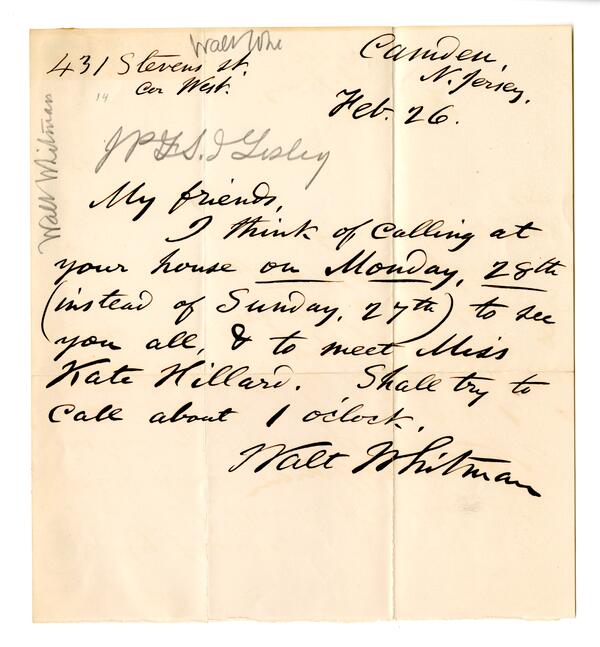 Walt Whi
431 Stevens st.
cor West.
Camden,
N. Jersey,
Feb. 26.
14
Walt Whitman
Lesley
My friends,
I think of calling at
your house on Monday, 28th
(instead of Sunday, 27th) to see
you all, & to meet Miss
Kate Hillard. Shall try to
call about 1 o'clock.
Walt Whitman